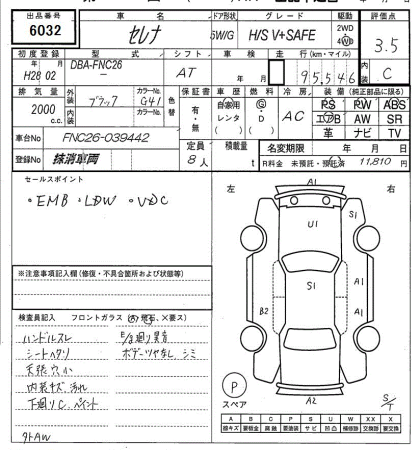 出品番号 車名 ドア形状 グレード 駆動 評価点
6032 セレナ 5W/G H/S V+SAFE 2WD 4WD 3.5
初度登録 型式 シフト 車検 走行(km・マイル) 内装
H28 02 DBA-FNC26 AT 年 月 95,546 C
排気量 外装 カラーNo. 色替 保証書 車歴 燃料 冷房 装備(純正部品に限る)
2000 c.c. ブラック G41 有・無 自家用 レンタ G・D AC PS PW ABS
内装 カラーNo. エアB AW SR
革 ナビ TV
車台No FNC26-039442 定員 積載量 名変期限 年 月 日
登録No 抹消車両 8人 t R料金 未預託・預託済 11,810 円
セールスポイント
・EMB ・LDW ・VDC
左 右
A1
S1
U1
A1
S1
B2 A1
A2
P
スペア
S/T
※注意事項記入欄(修復・不具合箇所および状態等)
検査員記入 フロントガラス ×要ス)
ハンドルスレ
シートヘタリ ボデーツヤなし シミ
天張穴小
内装キズ 汚れ
下廻りC.ペイント
社外AW
A B C P S U W X XX
線キズ 要板金 腐蝕 要塗装 サビ 凹凸 補修跡 交換跡 要交換